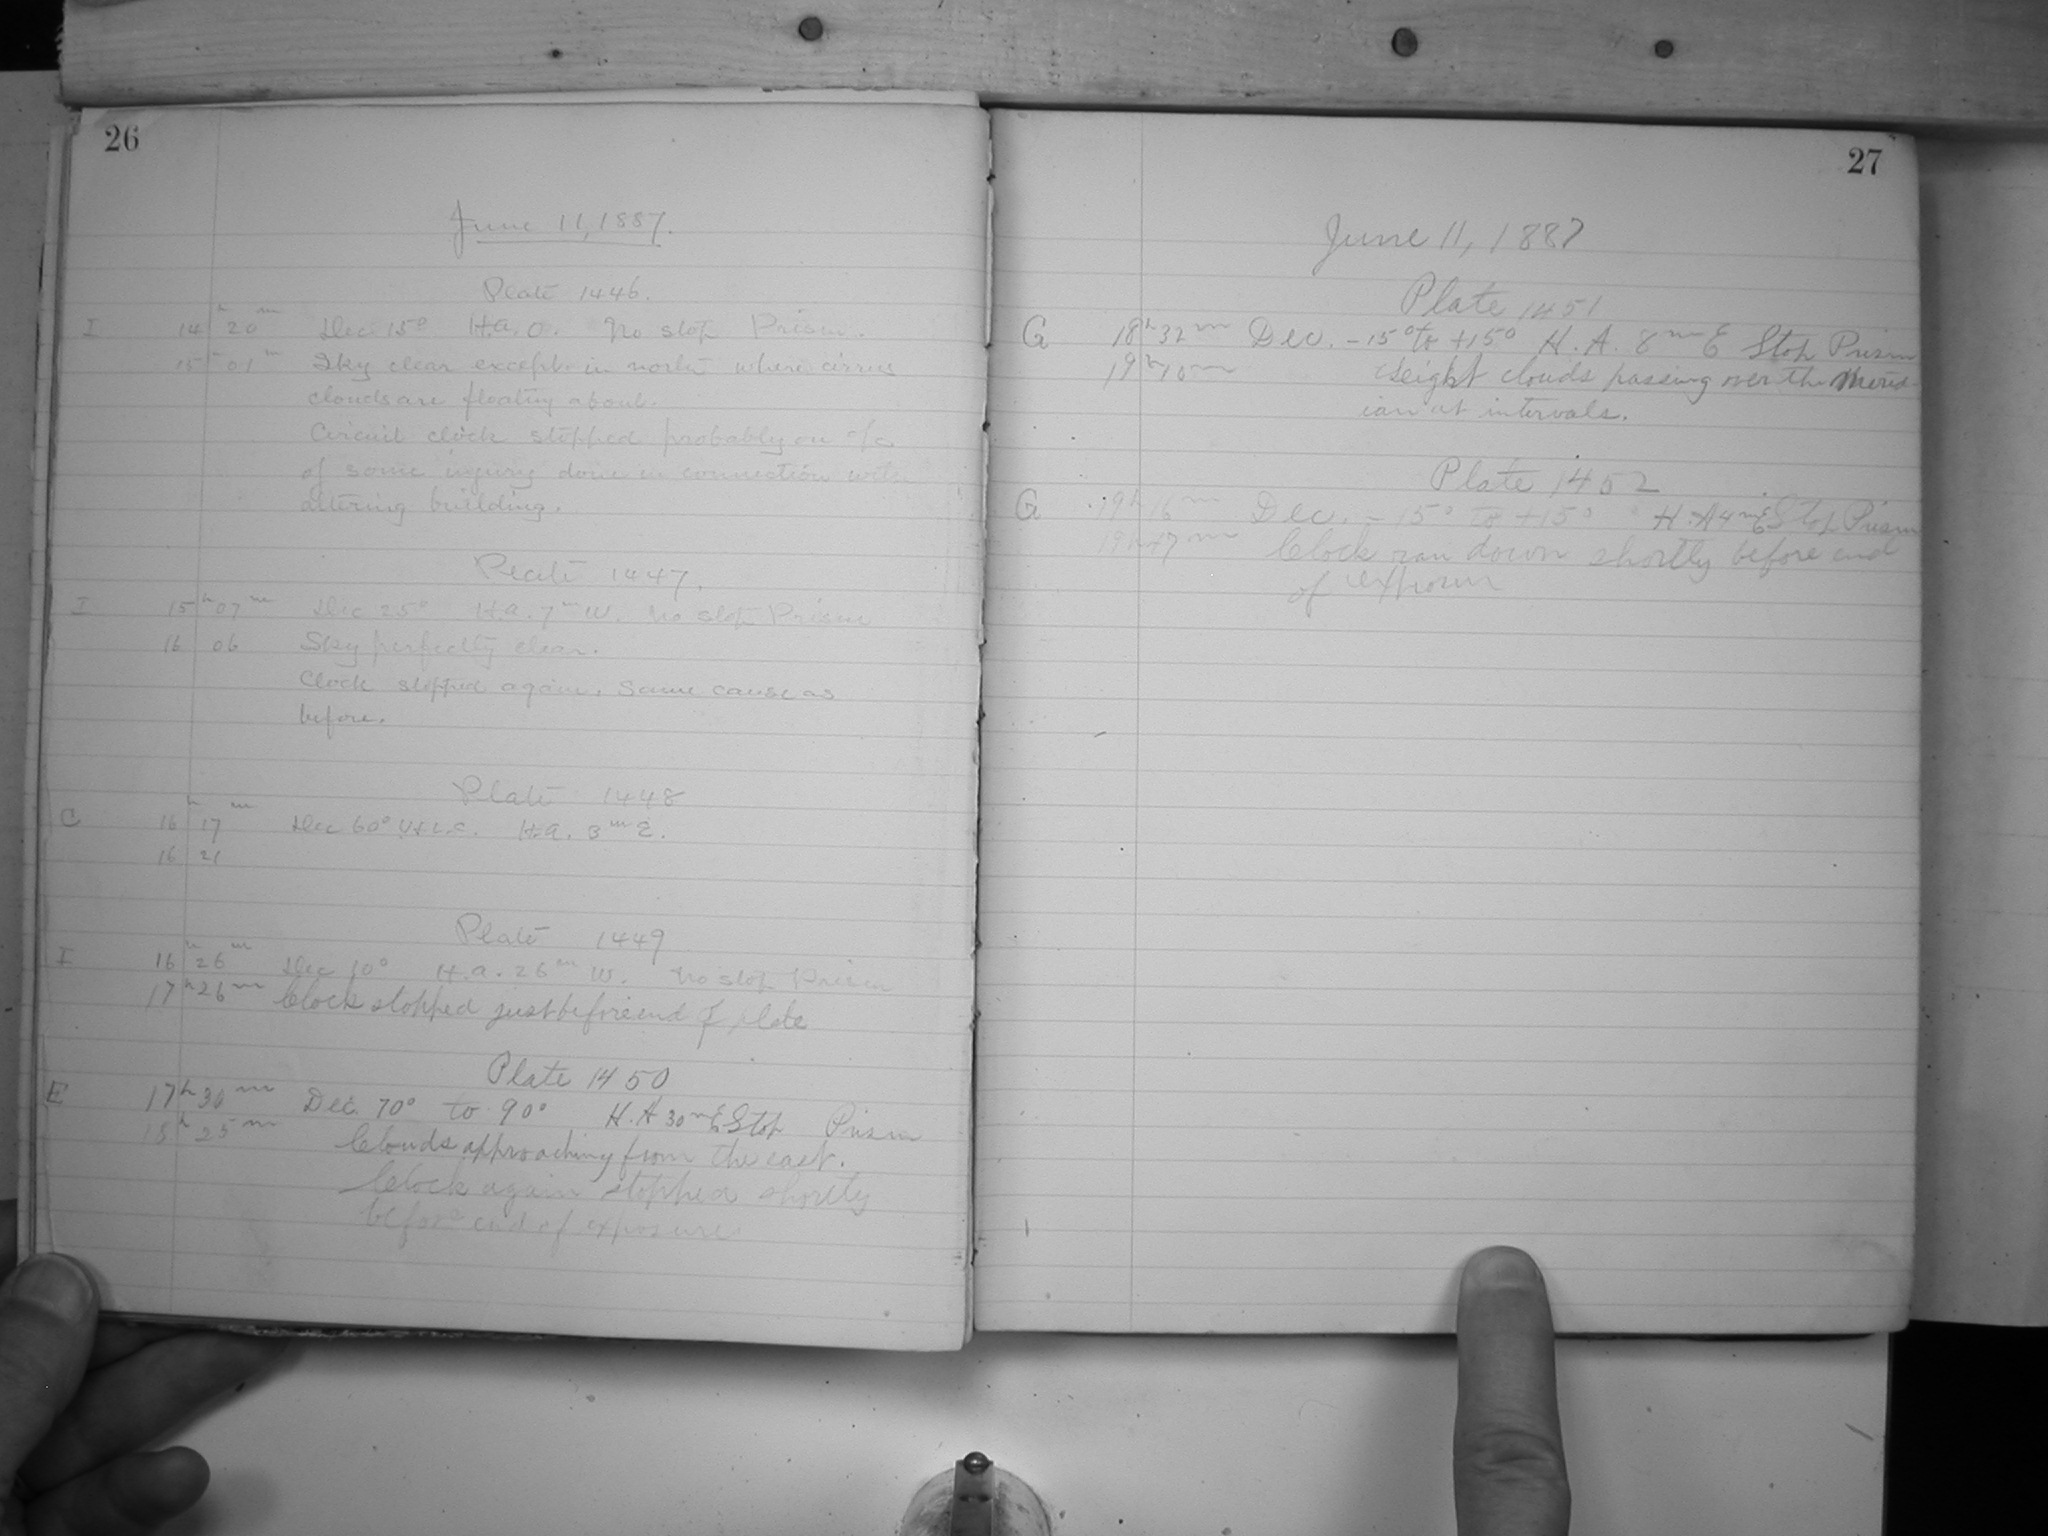 26
June 11, 1887.
Plate 1446.
I 14h 20m Dec 15° H.a. 0. No stop Prism.
15h 01m Sky clear except in north where cirrus
clouds are floating about.
Circuit clock stopped probably on a/c
of some injury done in connection with
altering building.
Plate 1447.
I 15h 07m Dec 25° H.a. 7m W. No stop Prism
16 06 Sky perfectly clear.
Clock stopped again. Same cause as
before.
Plate 1448
C 16h 17m Dec 60° H.a. 3m E.
16 21
Plate 1449
I 16h 26m Dec 10° H.a. 26m W. No stop Prism
17h 26m Clock stopped just before end of plate
Plate 1450
E 17h 30m Dec. 70° to 90° H.A 30m E Stop Prism
18h 25m Clouds approaching from the east.
Clock again stopped shortly
before end of exposure
27
June 11, 1887
Plate 1451
G 18h 32m Dec. -15° to +15° H.A. 8m E Stop Prism
19h 10m Slight clouds passing over the Merid-
ian at intervals.
Plate 1452
G 19h 16m Dec. -15° to +15° H.A 4m E Stop Prism
19h 47m Clock ran down shortly before end
of exposure